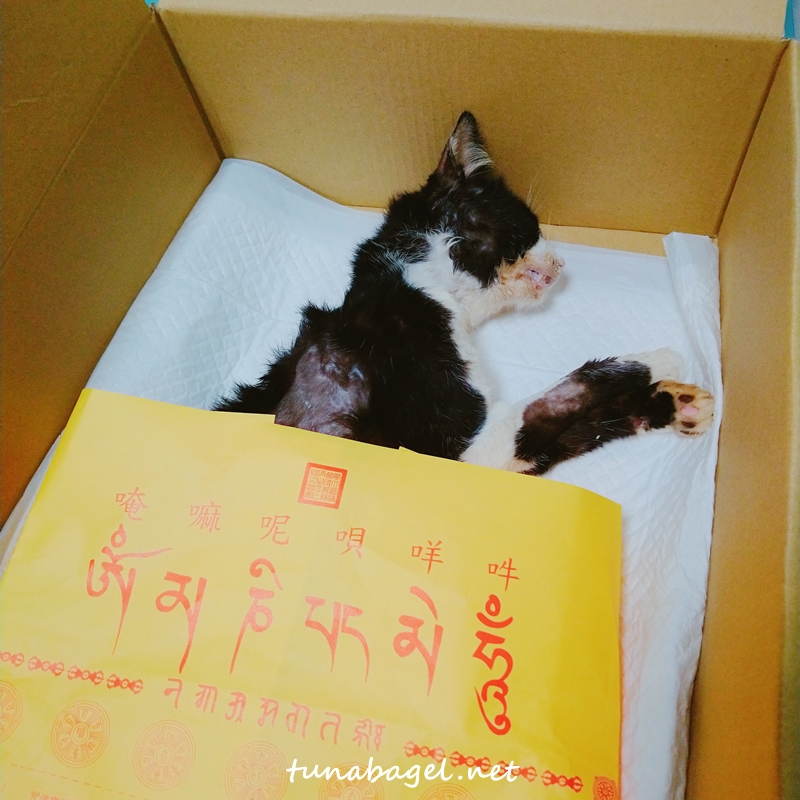 唵 嘛 呢 唄 咩 吽
ཨོཾ མ ཎི པད མེ ཧཱུྃ
tunabagel.net